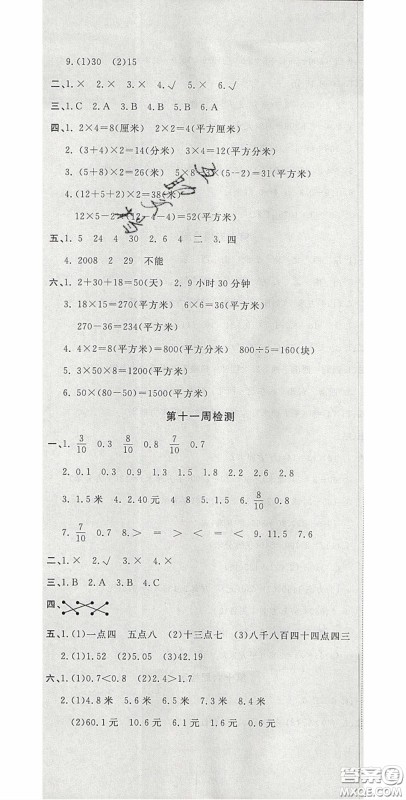 9.(1)30 (2)15
二、1.× 2.× 3.× 4.√ 5.× 6.√
三、1.C 2.A 3.B 4.C 5.B 6.A
四、1. 2×4=8(厘米) 2×2=4(平方厘米)
2.(3+4)×2=14(分米) 3×4=12(平方分米)
3.(5+8)×2=26(米) 5×8=40(平方米)
4.(12+5+2)×2=38(米)
12×5-2×(12-2-4)=52(平方米)
五、1.5 24 4 30 2.6 4 二 3.四
4.2008 2 29 不能
六、1.2+30+18=50(天) 2.9小时30分钟
3.18×15=270(平方米) 6×6=36(平方米)
270-36=234(平方米)
4.4×2=8(平方米)=800(平方分米) 800÷5=160(块)
5.3×50×8=1200(平方米)
6.50×(80-50)=1500(平方米)
第十一周检测
一、1. 3/10 0.3 8/10 0.8 7/10 0.7
2.0.1 0.3 0.9 1.3 1.6 2.2 2.8
3.1.5米 4.2.40元 4 8 5.1.5 6. 8/10 0.8
7. 7/10 0.7 8.> > = > < = < 9.11.5 7.6
二、1.× 2.√ 3.× 4.×
三、1.B 2.A 3.B 4.C
四、
五、1.(1)一点四 五点八 (2)十三点七 (3)八千八百四十四点四三
2.(1)1.52 (2)5.05 (3)42.19
六、1.(1)0.7<0.8 (2)1.7>1.6
2.(1)4.8米 5.6米 6.5米 7.3米
(2)60.1元 10.6元 6.1元 6.6元
答案圈
MXQE.COM